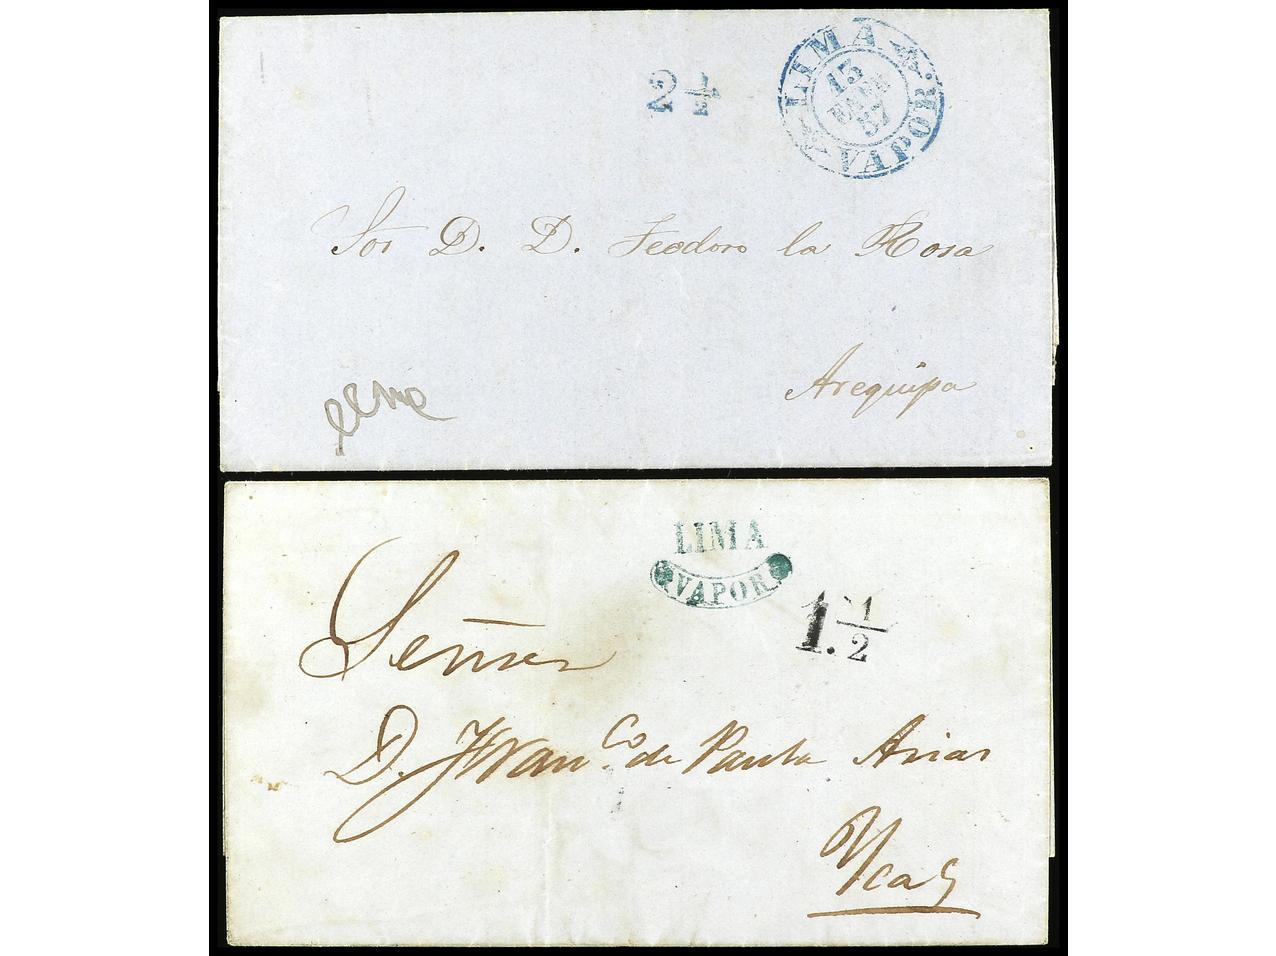 2 1/2
LIMA
13
ENER
57
VAPOR.
Sor D. D. Teodoro la Rosa
Arequipa
LIMA
VAPOR
1. 1/2
Señor
D. Franco. de Paula Arias
Yca